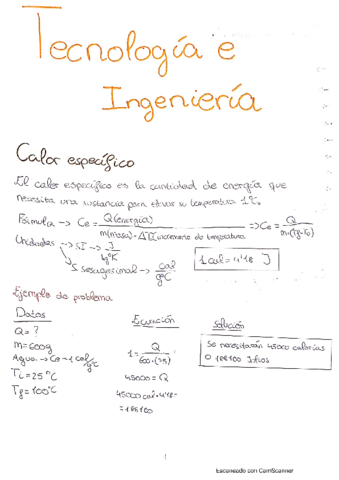 Tecnología e
Ingeniería
Calor específico
El calor específico es la cantidad de energía que
necesita una sustancia para elevar su temperatura 1ºC.
Fórmula -> Ce = Q(energía) / m(masa) · ΔT incremento de temperatura => Ce = Q / m·(Tf-To)
Unidades -> SI -> J / kgºK
-> Sesagesimal -> cal / gºC
1 cal = 4'18 J
Ejemplo de problema
Datos
Q = ?
m = 600g
Agua -> Ce = 1 cal/gºC
Ti = 25 ºC
Tf = 100ºC
Ecuación
1 = Q / 600·(75)
45000 = Q
45000 cal · 4'18 =
= 188100
Solución
Se necesitarán 45000 calorías
o 188100 Julios
1
Escaneado con CamScanner